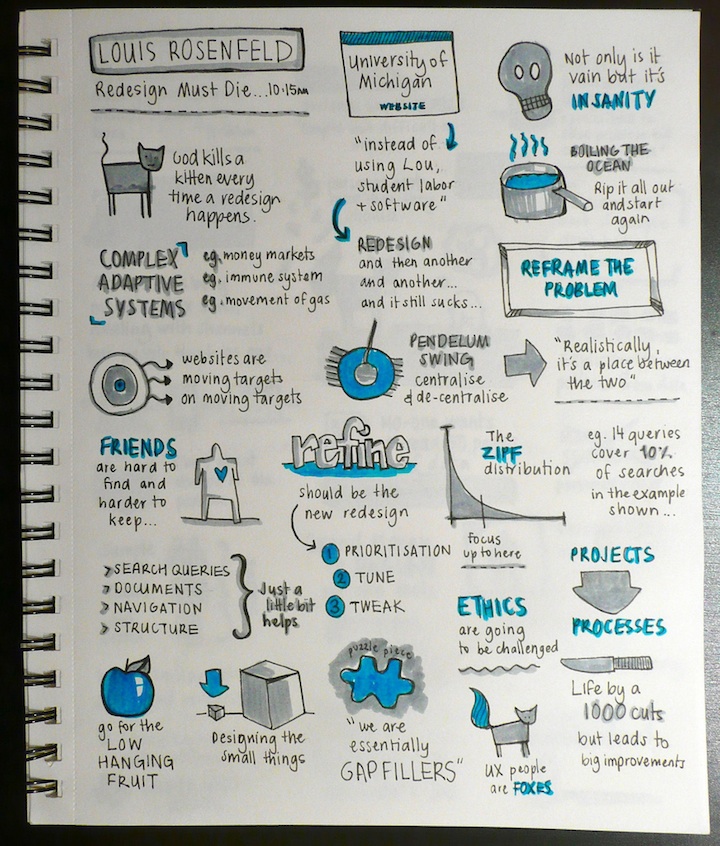 LOUIS ROSENFELD
Redesign Must Die... 10:15AM
University of
Michigan
WEBSITE
Not only is it
vain but it's
INSANITY
God kills a
kitten every
time a redesign
happens.
"instead of
using Lou,
student labor
+ software"
BOILING THE
OCEAN
Rip it all out
and start
again
COMPLEX
ADAPTIVE
SYSTEMS
eg. money markets
eg. immune system
eg. movement of gas
REDESIGN
and then another
and another...
and it still sucks...
REFRAME THE
PROBLEM
websites are
moving targets
on moving targets
PENDELUM
SWING
centralise
& de-centralise
"Realistically,
it's a place between
the two"
FRIENDS
are hard to
find and
harder to
keep...
refine
should be the
new redesign
1 PRIORITISATION
2 TUNE
3 TWEAK
The
ZIPF
distribution
focus
up to here
eg. 14 queries
cover 10%
of searches
in the example
shown...
> SEARCH QUERIES
> DOCUMENTS
> NAVIGATION
> STRUCTURE
Just a
little bit
helps
ETHICS
are going
to be challenged
PROJECTS
PROCESSES
go for the
LOW
HANGING
FRUIT
Designing the
small things
puzzle piece
"we are
essentially
GAP FILLERS"
UX people
are FOXES
Life by a
1000 cuts
but leads to
big improvements